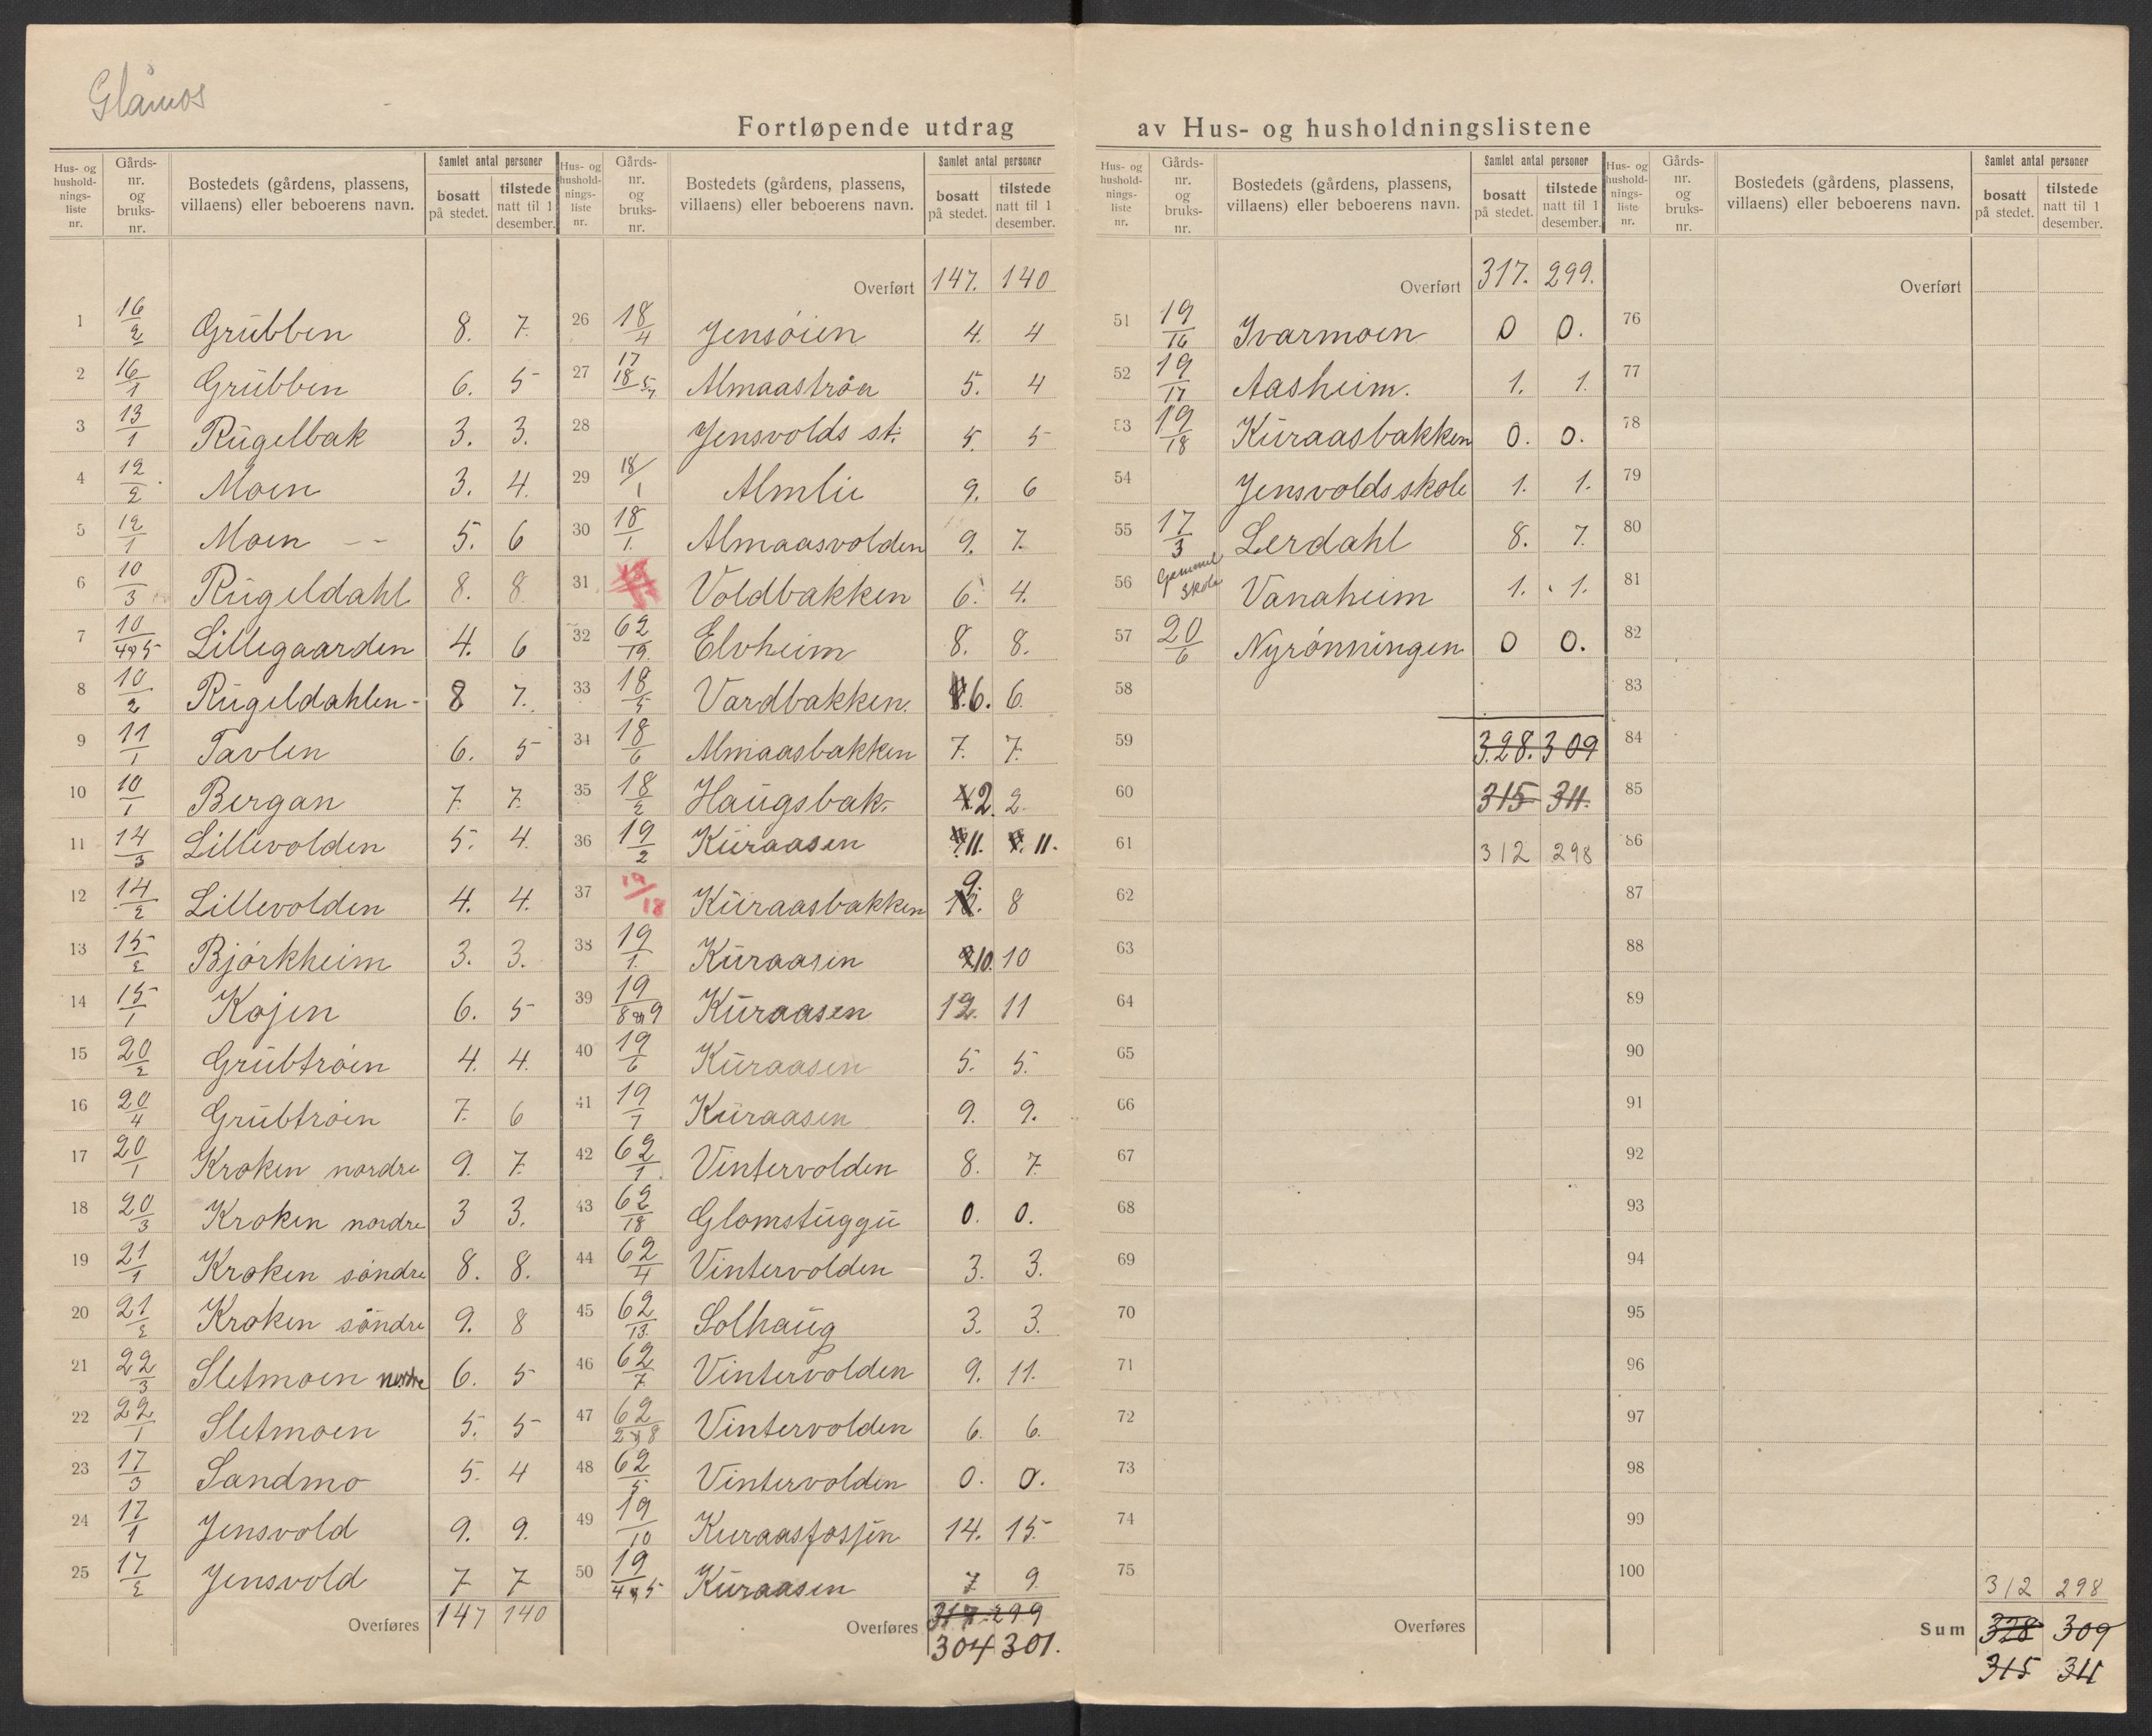 Glåmos
Fortløpende utdrag av Hus- og husholdningslistene
Hus- og husholdnings-liste nr. | Gårds-nr. og bruks-nr. | Bostedets (gårdens, plassens, villaens) eller beboerens navn. | Samlet antal personer | bosatt på stedet. | tilstede natt til 1 desember.
1 16/2 Grubben 8. 7.
2 16/1 Grubben 6. 5
3 13/1 Rugelbak 3. 3.
4 12/2 Moen 3. 4.
5 12/1 Moen -- 5. 6
6 10/3 Rugeldahl 8. 8.
7 10/4og5 Lillegaarden 4. 6
8 10/2 Rugeldahlen- 8 7.
9 11/1 Tavlen 6. 5
10 10/1 Bergan 7. 7.
11 14/3 Lillevolden 5. 4.
12 14/2 Lillevolden 4. 4.
13 15/2 Bjørkheim 3. 3.
14 15/1 Kojen 6. 5
15 20/2 Grubtrøin 4. 4.
16 20/4 Grubtrøin 7. 6
17 20/1 Kroken nordre 9. 7.
18 20/3 Kroken nordre 3 3.
19 21/1 Kroken søndre 8. 8.
20 21/2 Kroken søndre 9. 8
21 22/3 Sletmoen nordre 6. 5
22 22/1 Sletmoen 5. 5
23 17/3 Sandmo 5. 4
24 17/1 Jensvold 9. 9.
25 17/2 Jensvold 7 7
Overføres 147 140
Hus- og husholdnings-liste nr. | Gårds-nr. og bruks-nr. | Bostedets (gårdens, plassens, villaens) eller beboerens navn. | Samlet antal personer | bosatt på stedet. | tilstede natt til 1 desember.
Overført 147. 140
26 18/4 Jensøien 4. 4
27 17 18/5 Almaastrøa 5. 4
28 Jensvolds st: 5. 5
29 18/1 Almlie 9. 6
30 18/1. Almaasvolden 9. 7.
31 Voldbakken 6. 4.
32 62/19. Elvheim 8. 8.
33 18/5 Vardbakken. 6. 6.
34 18/6 Almaasbakken 7. 7.
35 18/2 Haugsbak- 2. 2.
36 19/2 Kuraasen 11. 11.
37 19/18 Kuraasbakken 9. 8
38 19/1. Kuraasin 10. 10
39 19/8og9 Kuraasen 12. 11
40 19/6 Kuraasen 5. 5.
41 19/7 Kuraasen 9. 9.
42 62/1. Vintervolden 8. 7.
43 62/18 Glomstuggu 0. 0.
44 62/4 Vintervolden 3. 3.
45 62/13. Solhaug 3. 3.
46 62/7. Vintervolden 9. 11.
47 62/2og8 Vintervolden 6. 6.
48 62/5 Vintervolden 0. 0.
49 19/10 Kuraasfossen 14. 15
50 19/4og5 Kuraasen 7 9.
Overføres 317. 299
304 301.
Hus- og husholdnings-liste nr. | Gårds-nr. og bruks-nr. | Bostedets (gårdens, plassens, villaens) eller beboerens navn. | Samlet antal personer | bosatt på stedet. | tilstede natt til 1 desember.
Overført 317. 299.
51 19/16 Ivarmoen 0 0.
52 19/17 Aasheim. 1. 1.
53 19/18 Kuraasbakken 0. 0.
54 Jensvolds skole 1. 1.
55 17/3 Lerdahl 8. 7.
56 Gammel skole Vanaheim 1. 1.
57 20/6 Nyrønningen 0 0.
58
59 328. 309
60 315 311.
61 312 298
62
63
64
65
66
67
68
69
70
71
72
73
74
75
Overføres
Hus- og husholdnings-liste nr. | Gårds-nr. og bruks-nr. | Bostedets (gårdens, plassens, villaens) eller beboerens navn. | Samlet antal personer | bosatt på stedet. | tilstede natt til 1 desember.
Overført
76
77
78
79
80
81
82
83
84
85
86
87
88
89
90
91
92
93
94
95
96
97
98
99
100
312 298
Sum 328 309
315 311